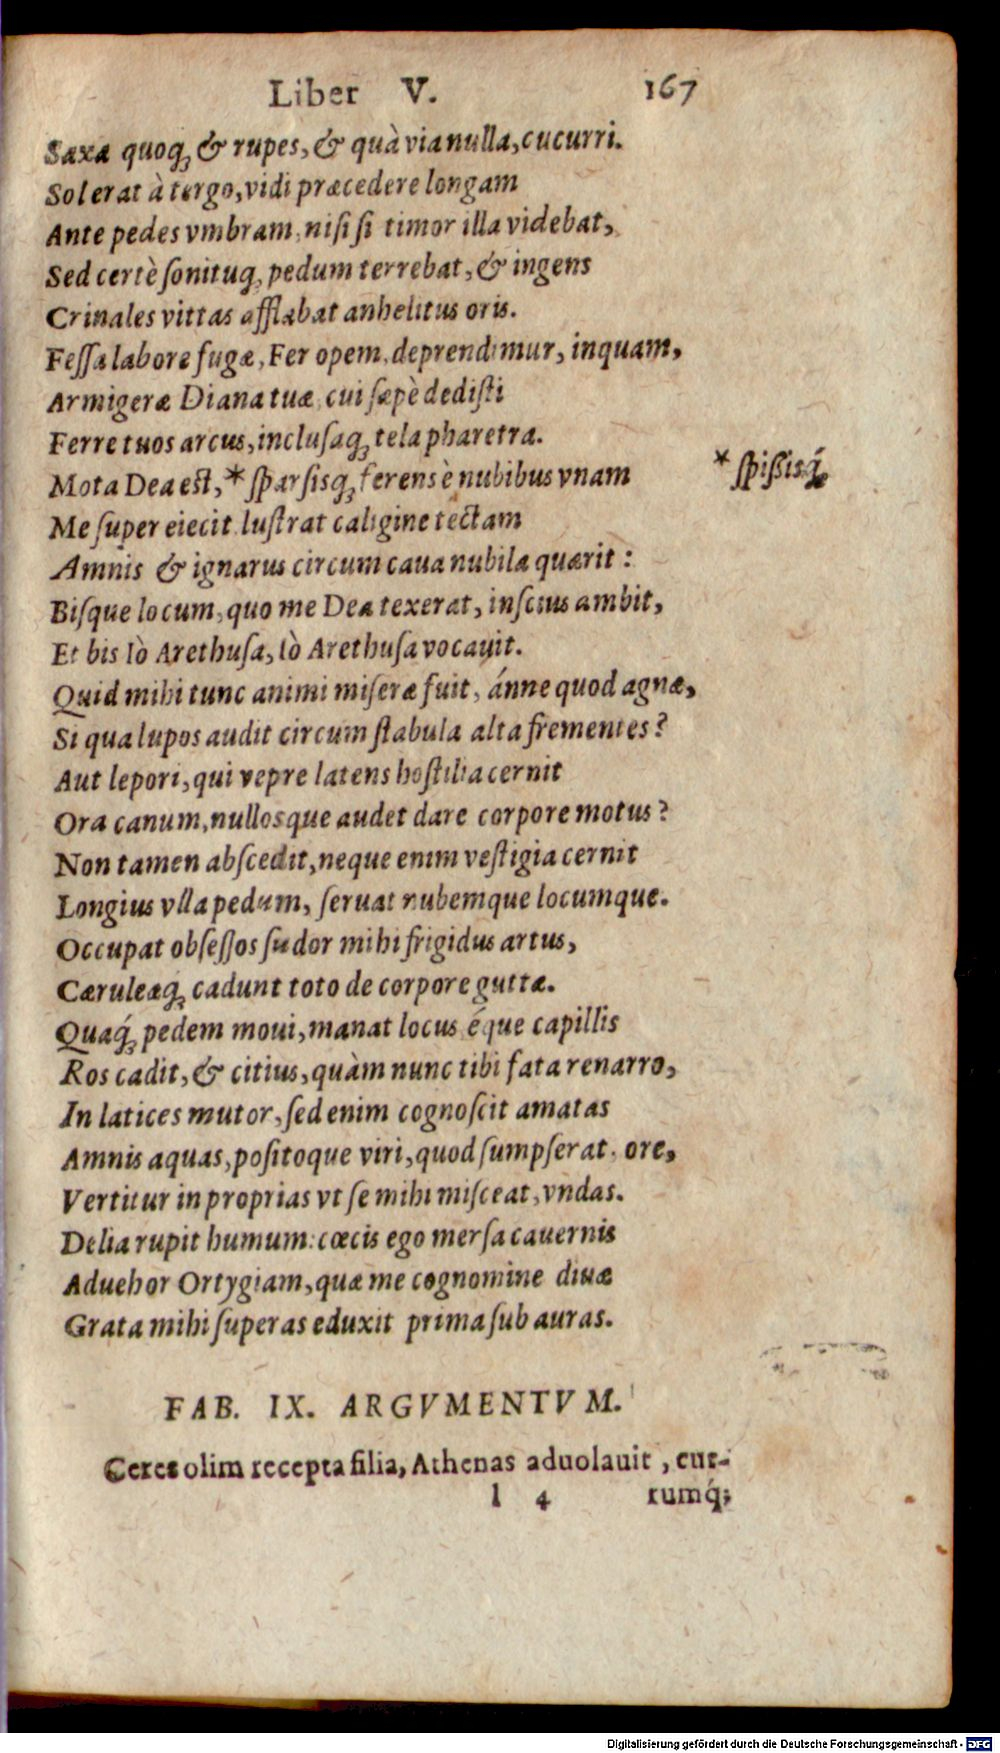 Liber V. 167
Saxa quoq́; & rupes, & quà via nulla, cucurri.
Sol erat à tergo, vidi præcedere longam
Ante pedes vmbram, niſi ſi timor illa videbat,
Sed certè ſonituq; pedum terrebat, & ingens
Crinales vittas afflabat anhelitus oris.
Feſſa labore fugæ, Fer opem, deprendimur, inquam,
Armigeræ Diana tuæ, cui ſæpè dediſti
Ferre tuos arcus, incluſaq; tela pharetra.
Mota Dea est, * ſparſisq; ferens è nubibus vnam
* ſpißisq́;
Me ſuper eiecit. luſtrat caligine tectam
Amnis & ignarus circum caua nubila quærit:
Biſque locum, quo me Dea texerat, inſcius ambit,
Et bis Iò Arethuſa, Iò Arethuſa vocauit.
Quid mihi tunc animi miſeræ fuit, ánne quod agnæ,
Si qua lupos audit circum ſtabula alta frementes?
Aut lepori, qui vepre latens hoſtilia cernit
Ora canum, nullosque audet dare corpore motus?
Non tamen abſcedit, neque enim veſtigia cernit
Longius vlla pedum, ſeruat nubemque locumque.
Occupat obſeſſos ſudor mihi frigidus artus,
Cæruleæq; cadunt toto de corpore guttæ.
Quaq́; pedem moui, manat locus, éque capillis
Ros cadit, & citius, quàm nunc tibi fata renarro,
In latices mutor, ſed enim cognoſcit amatas
Amnis aquas, poſitoque viri, quod ſumpſerat, ore,
Vertitur in proprias vt ſe mihi miſceat, vndas.
Delia rupit humum: cœcis ego merſa cauernis
Aduehor Ortygiam, quæ me cognomine diuæ
Grata mihi ſuperas eduxit prima ſub auras.
FAB. IX. ARGVMENTVM.
Ceres olim recepta filia, Athenas aduolauit, cur-
l 4 rumq́;
Digitalisierung gefördert durch die Deutsche Forschungsgemeinschaft - DFG